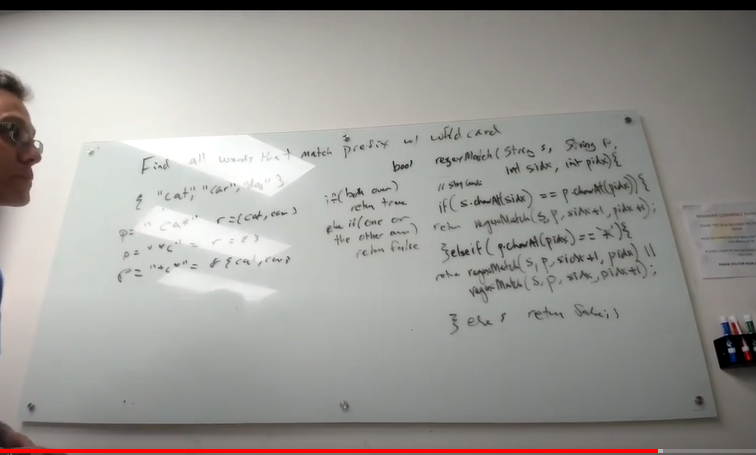 Find all words that match prefix w/ wild card
{ "cat", "car", "dog" }
p= "ca*" r={cat, car}
p= "*c" = r = { }
p= "*c*" = r {cat, car}
if (both over)
return true
else if (one or
the other over)
return false
bool regexMatch (String s, String p,
int sidx, int pidx) {
if (s.charAt(sidx) == p.charAt(pidx)) {
return regexMatch (s, p, sidx+1, pidx+1);
} else if (p.charAt(pidx) == '*') {
return regexMatch (s, p, sidx+1, pidx) ||
regexMatch (s, p, sidx, pidx+1);
} else return false;